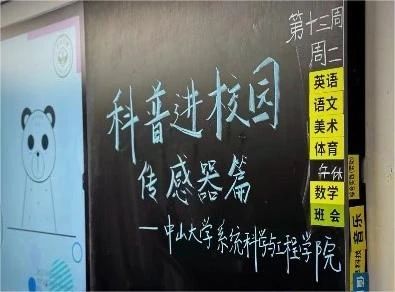 科普进校园
传感器篇
—中山大学系统科学与工程学院
第十三周
周二
英语
语文
美术
体育
午休
数学
班会
音乐